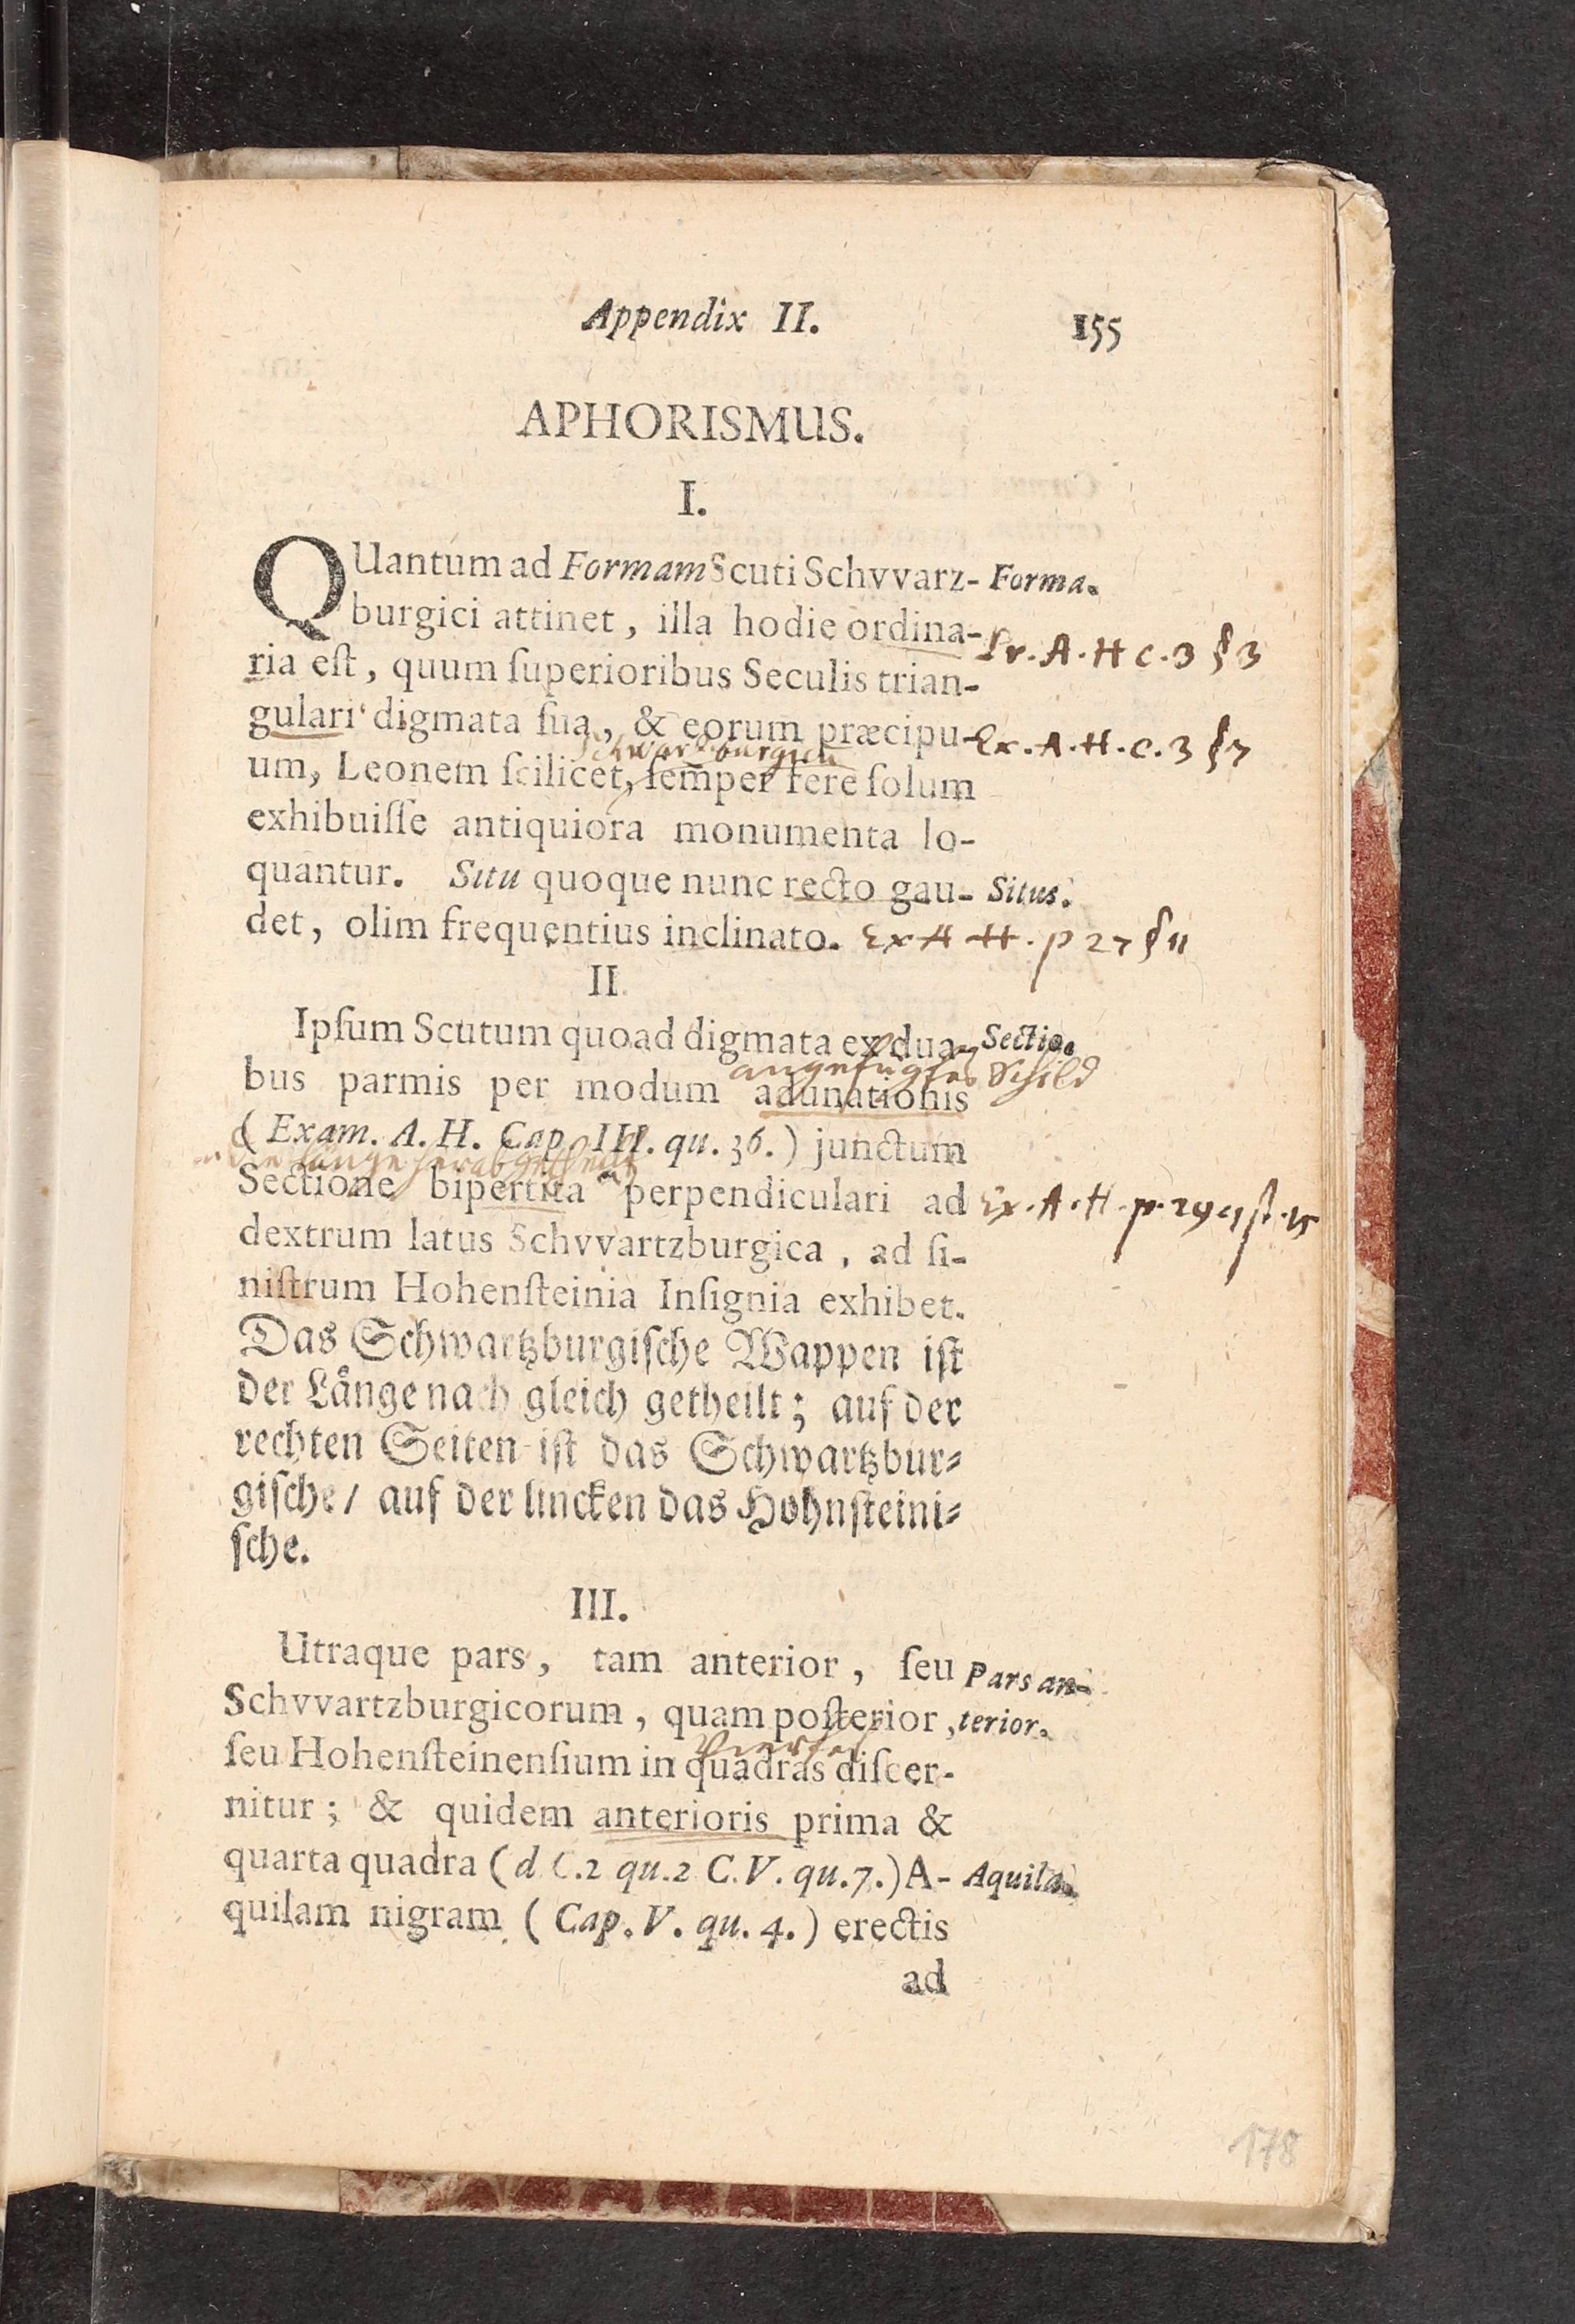 Appendix II. 155
APHORISMUS.
I.
QUantum ad Formam Scuti Schvvarz- Forma.
burgici attinet, illa hodie ordina-
Pr. A. H c. 3 § 3
ria eſt, quum ſuperioribus Seculis trian-
gulari digmata ſua, & eorum præcipu-
Ex. A. H. c. 3 § 7
Schwarzburgicu
um, Leonem ſcilicet, ſemper fere ſolum
exhibuiſſe antiquiora monumenta lo-
quantur. Situ quoque nunc recto gau- Situs.
det, olim frequentius inclinato. Ex A H. p 27 § 11
II
Ipſum Scutum quoad digmata ex dua- Sectio.
angefügtes Schild
bus parmis per modum adunationis
(Exam. A. H. Cap. III. qu. 36.) junctum
die länge herab getheilt
Sectione bipertita perpendiculari ad
Ex. A. H. p. 29
dextrum latus Schvvartzburgica, ad ſi-
niſtrum Hohenſteinia Inſignia exhibet.
Das Schwartzburgiſche Wappen iſt
der Länge nach gleich getheilt; auf der
rechten Seiten iſt das Schwartzbur-
giſche/ auf der lincken das Hohnſteini-
ſche.
III.
Utraque pars, tam anterior, ſeu Pars an-
Schvvartzburgicorum, quam poſterior, terior.
ſeu Hohenſteinenſium in quadras diſcer-
nitur; & quidem anterioris prima &
quarta quadra (d. C.2 qu.2 C.V. qu.7.) A- Aquila.
quilam nigram (Cap. V. qu. 4.) erectis
ad
178